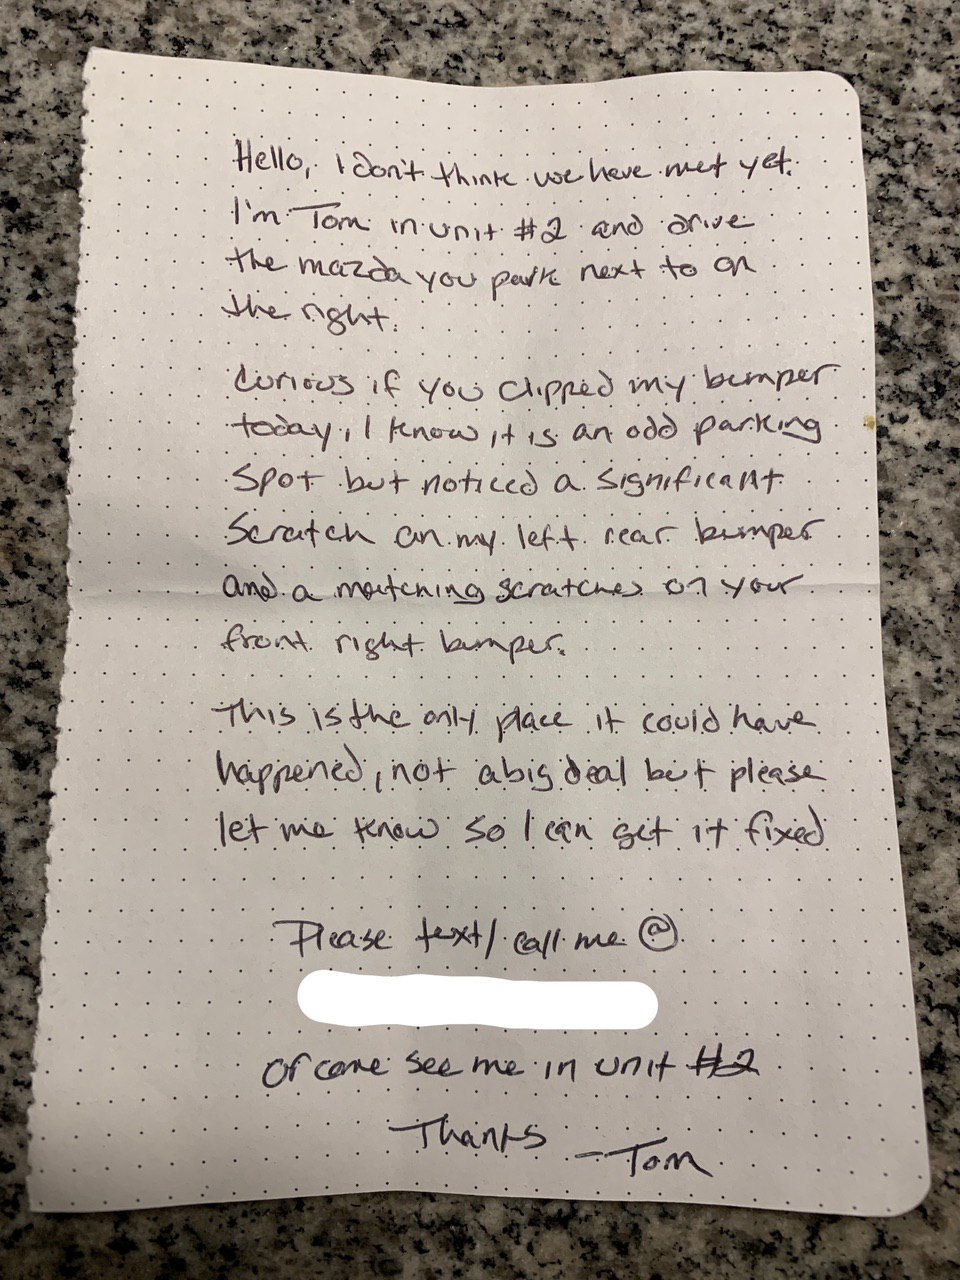 Hello, I don't think we have met yet.
I'm Tom in unit #2 and drive
the mazda you park next to on
the right.
Curious if you clipped my bumper
today, I know it is an odd parking
spot but noticed a significant
scratch on my left rear bumper
and a matching scratches on your
front right bumper.
This is the only place it could have
happened, not a big deal but please
let me know so I can get it fixed
Please text/call me @
or come see me in unit #2
Thanks
-Tom